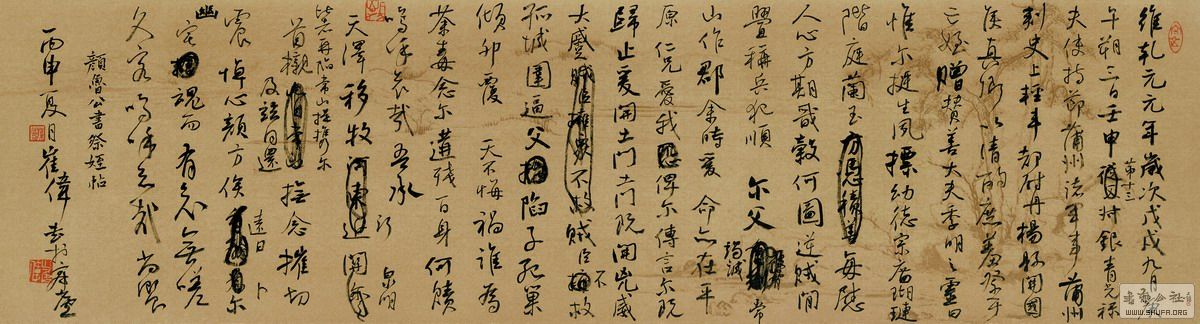 維乾元元年歲次戊戌九月庚
午朔三日壬申第十三叔銀青光祿
夫使持節蒲州諸軍事蒲州
刺史上輕車都尉丹楊縣開國
侯真卿以清酌庶羞祭于
亡姪贈贊善大夫季明之靈曰
惟爾挺生夙標幼德宗廟瑚璉
階庭蘭玉每慰
人心方期戩穀何圖逆賊閒
釁稱兵犯順爾父竭誠常
山作郡余時受命亦在平
原仁兄愛我俾爾傳言爾既
歸止爰開土門土門既開兇威
大蹙賊臣不救
孤城圍逼父陷子死巢
傾卵覆天不悔禍誰為
荼毒念爾遘殘百身何贖
嗚呼哀哉吾承
天澤移牧河關泉明
比者再陷常山攜爾
首櫬及茲同還撫念摧切
震悼心顏方俟遠日卜爾
幽宅魂而有知無嗟
久客嗚呼哀哉尚饗
顏魯公書祭姪帖
丙申夏月崔偉書於廬
书法公社
WWW.SHUFA.ORG